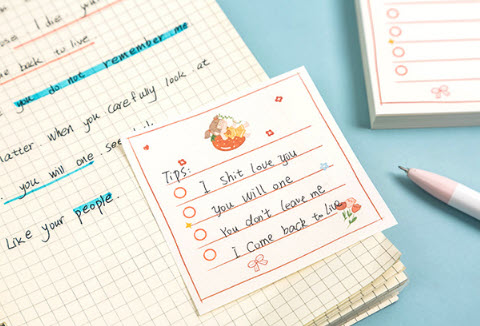 I die you
back to live
you do not remember me
matter when you carefully look at
you will one . see
Like your people.
Tips:
I shit love you
You will one
You don't leave me
I come back to live